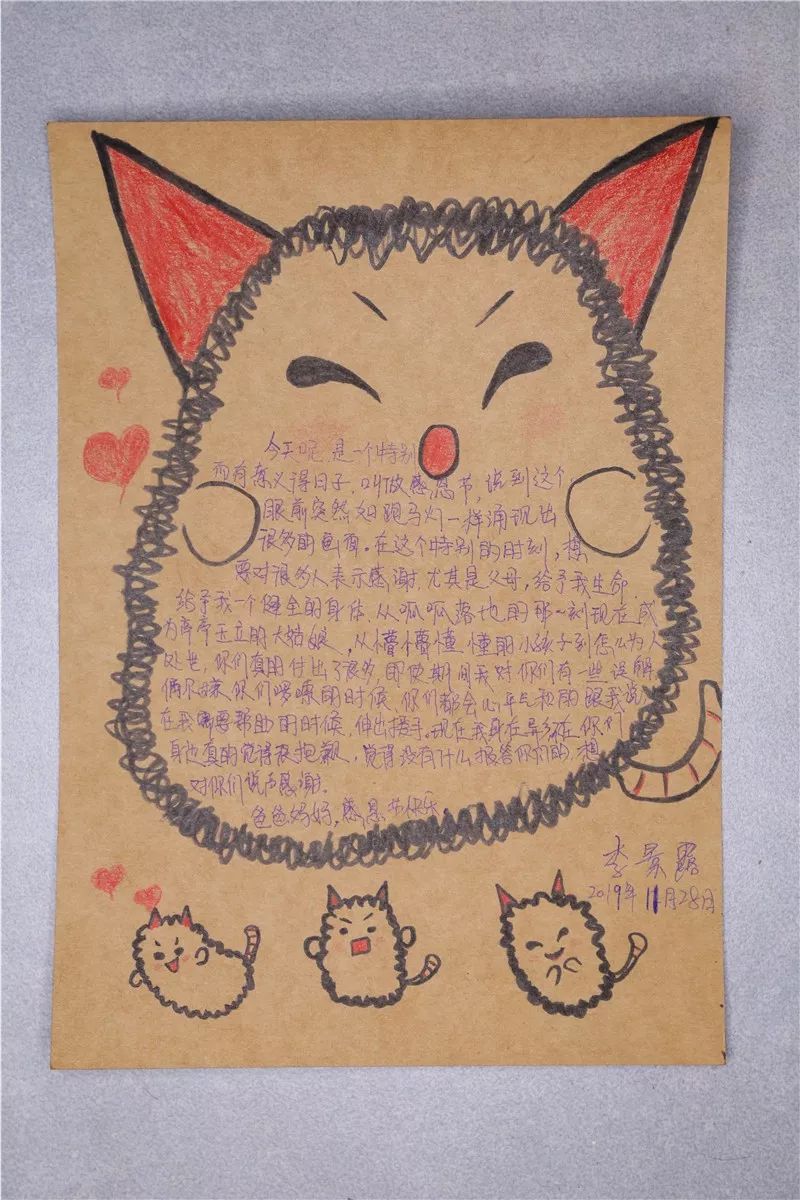 今天呢,是一个特别
而有意义得日子.叫做感恩节,说到这个
眼前突然如跑马灯一样涌现出
很多的画面。在这个特别的时刻,想
要对很多人表示感谢.尤其是父母,给予我生命.
给予我一个健全的身体.从呱呱落地的那一刻现在成
为亭亭玉立的大姑娘,从懵懵懂懂的小孩子到怎么为人
处世,你们真的付出了很多,即使期间我对你们有一些误解
你们啰嗦的时候.你们都会心平气和的跟我说
在我需要帮助的时候,伸出援手.现在我身在异乡在你们
身边真的觉得很抱歉,觉得没有什么报答你们的,想
对你们说声感谢.
爸爸妈妈,感恩节快乐
李景露
2019年11月28日